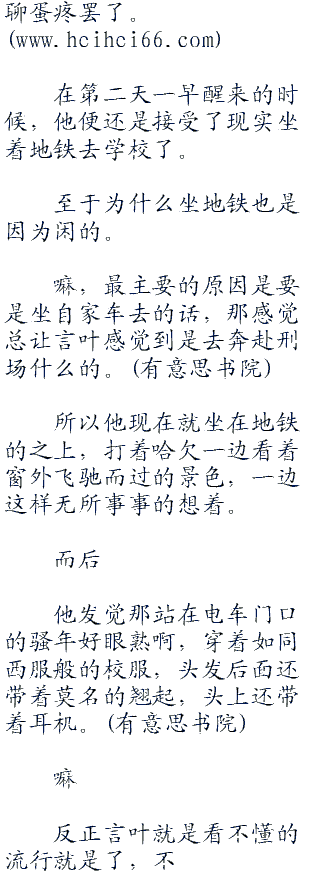 聊蛋疼罢了。
(www.hcihci66.com)
在第二天一早醒来的时
候，他便还是接受了现实坐
着地铁去学校了。
至于为什么坐地铁也是
因为闲的。
嘛，最主要的原因是要
是坐自家车去的话，那感觉
总让言叶感觉到是去奔赴刑
场什么的。(有意思书院)
所以他现在就坐在地铁
的之上，打着哈欠一边看着
窗外飞驰而过的景色，一边
这样无所事事的想着。
而后
他发觉那站在电车门口
的骚年好眼熟啊，穿着如同
西服般的校服，头发后面还
带着莫名的翘起，头上还带
着耳机。(有意思书院)
嘛
反正言叶就是看不懂的
流行就是了，不